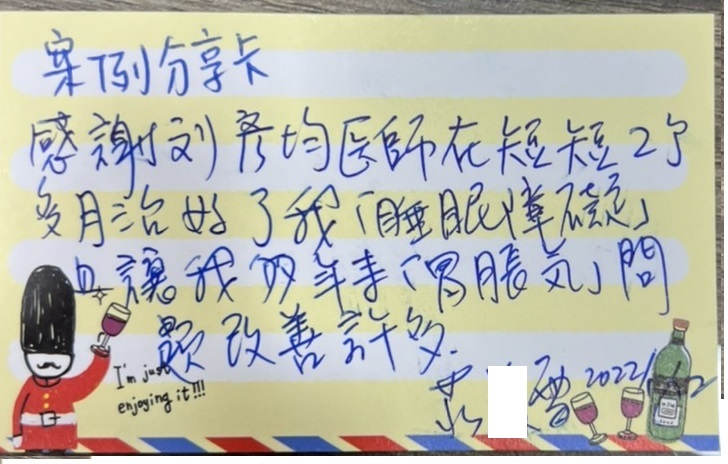 案例分享卡
感謝刘彥均医師在短短2个
多月治好了我「睡眠障礙」
且讓我多年來「胃脹气」問
題改善許多.
I'm just
enjoying it!!!
2022/